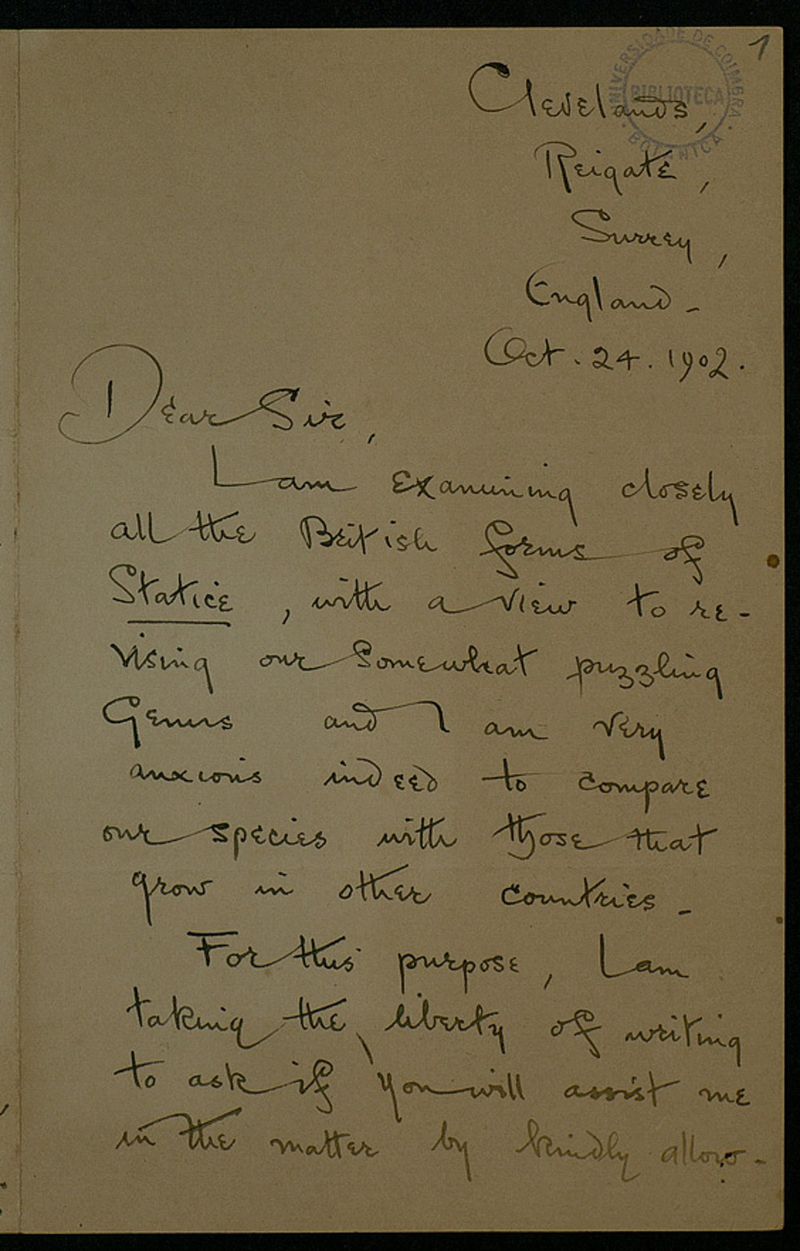 1
UNIVERSIDADE DE COIMBRA
BIBLIOTECA
BOTANICA
Clevelands,
Reigate,
Surrey,
England -
Oct. 24. 1902.
Dear Sir,
I am examining closely
all the British forms of
Statice, with a view to re-
vising our somewhat puzzling
Genus and I am very
anxious indeed to compare
our species with those that
grow in other countries -
For this purpose, I am
taking the liberty of writing
to ask if you will assist me
in the matter by kindly allow-